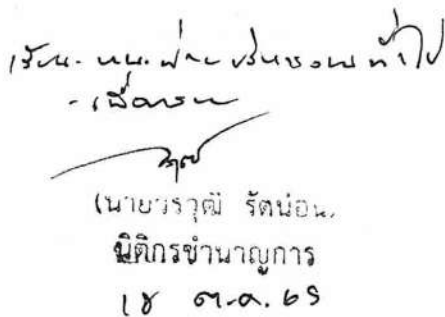 เรียน - หน.ฝ่ายบริหารงานทั่วไป
- เพื่อทราบ
(นายวรวุฒิ รัตน่อน
นิติกรชำนาญการ
ต.ค. 65